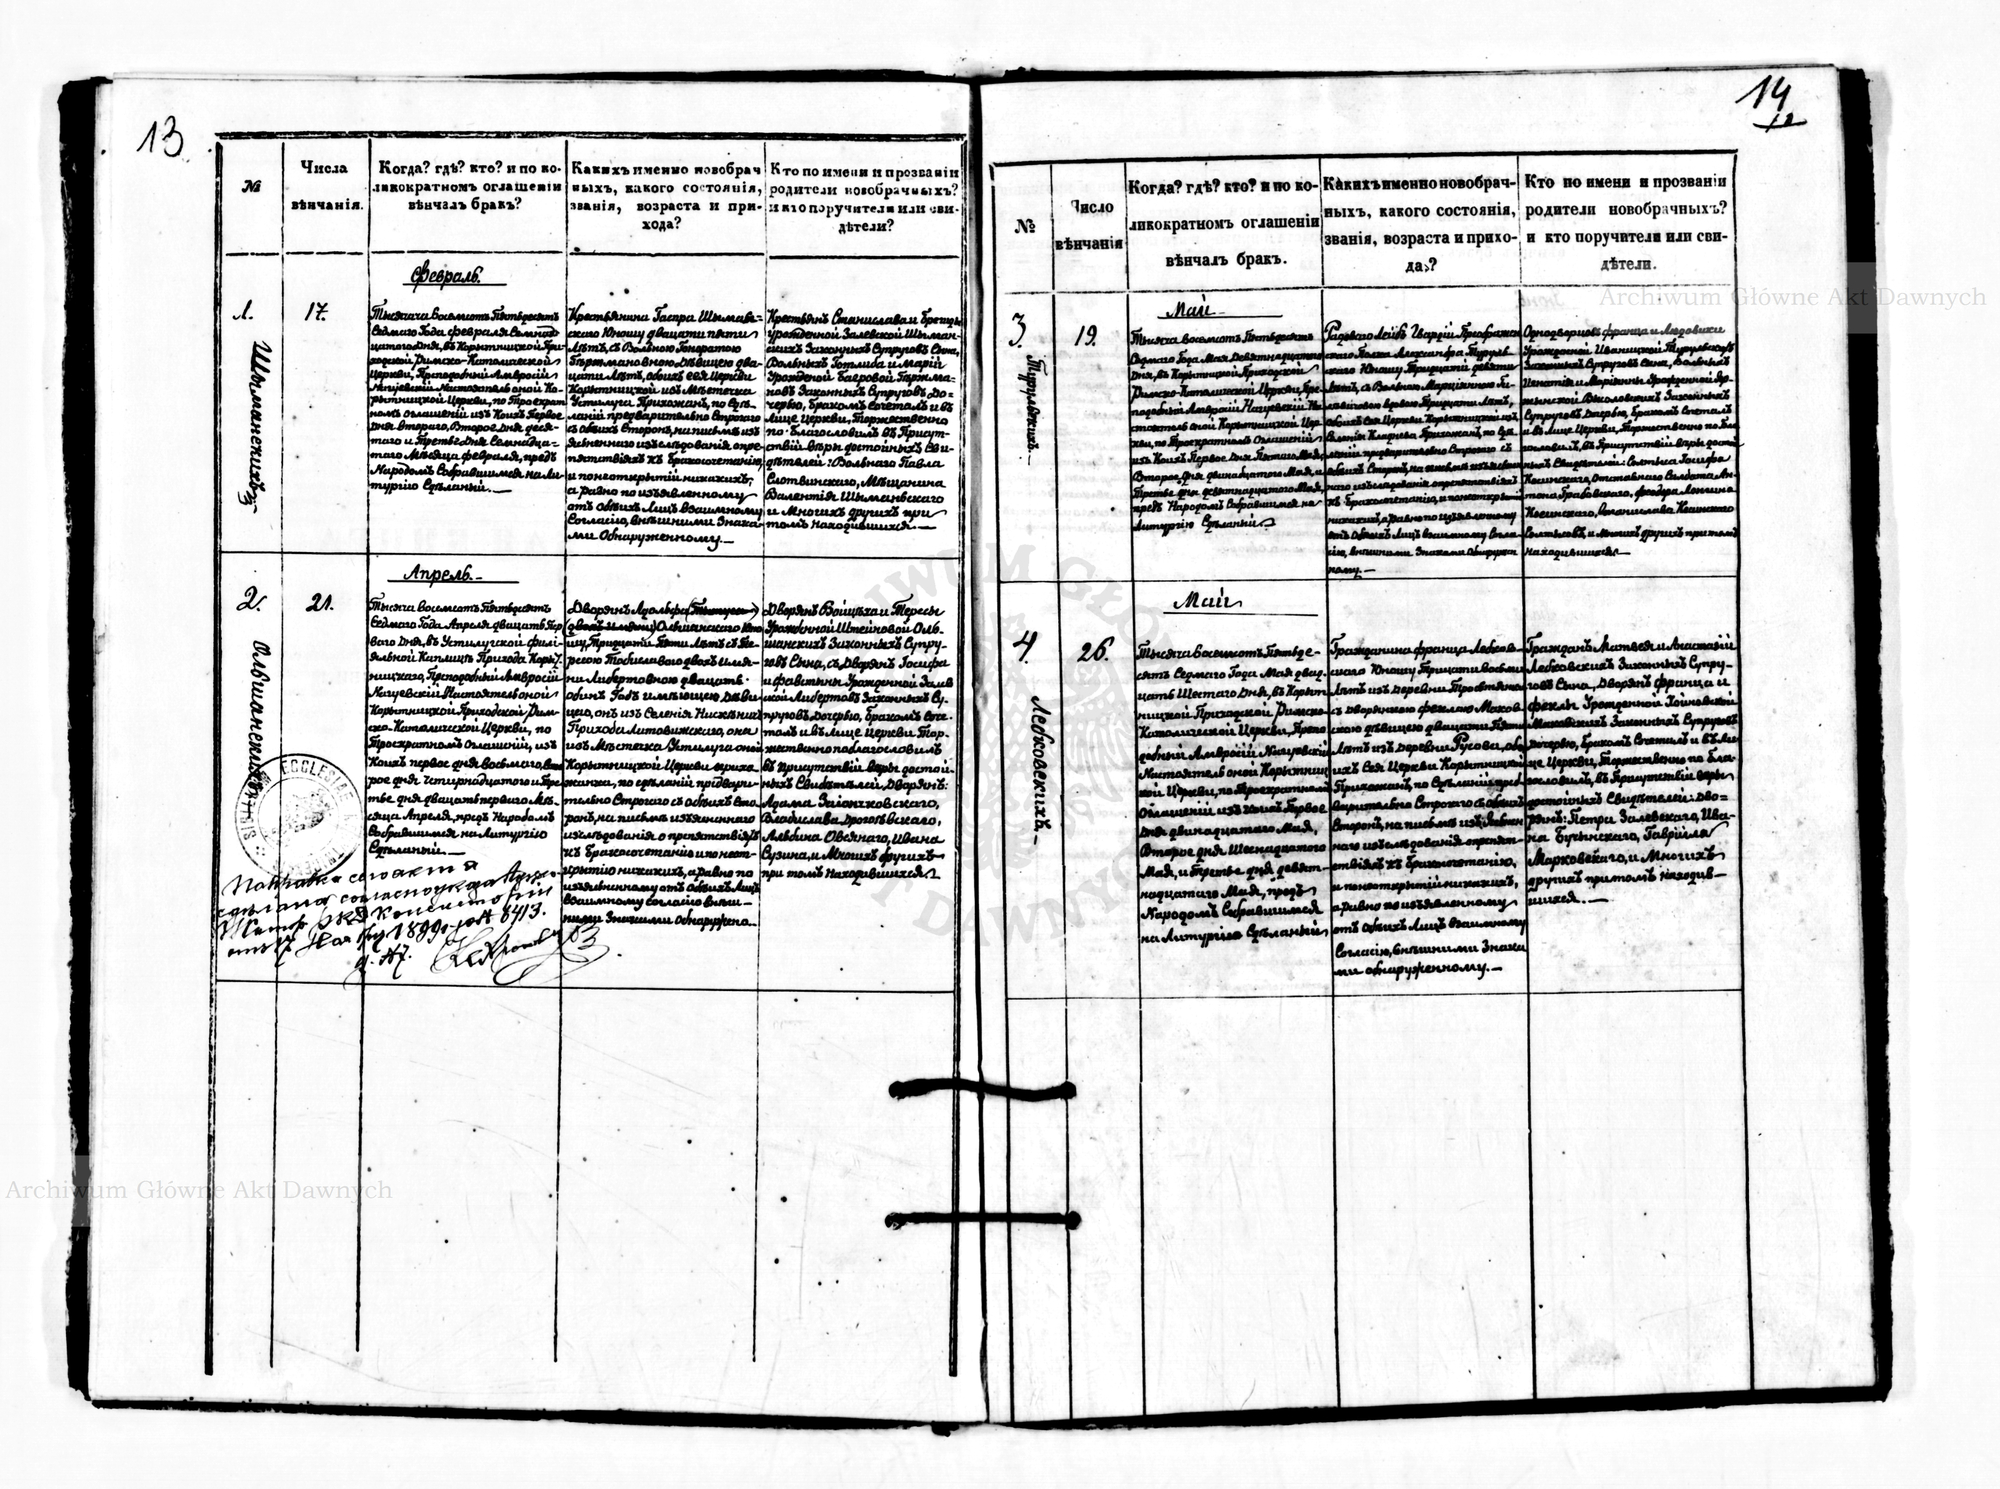 13
№
Числа
вѣнчанія.
Когда? гдѣ? кто? и по ко-
ликократномъ оглашеніи
вѣнчалъ бракъ?
Какихъ именно новобрач
ныхъ, какого состоянія,
званія, возраста и при-
хода?
Кто по имени и прозванію
родители новобрачныхъ?
и кто поручители или сви-
дѣтели?
Февраль.
1.
17.
Тысяча восемсотъ Пятьдесятъ
Седмаго Года Февраля Семнад
цатаго Дня, въ Корытницкой При-
ходской Римско-Католической
Церкви, Преподобный Амвросій
Настоятель оной Ко-
рытницкой Церкви, по Троекрат
номъ оглашеніи изъ Коихъ Первое
Дня Втораго, Второе Дня деся-
таго и Третье Дня Семнадца-
таго Мѣсяца Февраля, предъ
Народомъ Собравшимся на Ли-
тургію Сдѣланый.—
Крестьянина Гаспра Шыман-
скаго Юношу двацати пяти
Лѣтъ, съ Вольною
Гержмановною Дѣвицею два-
цати Лѣтъ, обоихъ сея Церкви
Корытницкой изъ Мѣстечка
Устилуга Прихожанъ, по Сдѣ-
ланій предварительно Строгаго
съ обоихъ Сторонъ, на письмѣ изъ
явленнаго изъслѣдованія опре-
пятствіяхъ къ Бракосочетанію,
и понеоткрытій никакихъ,
а равно по изъявленному
отъ обѣихъ Лицъ взаимному
Согласію, внѣшними Знака-
ми Обнаруженному.—
Крестьянъ Станислава и
урожденной Залевской Шыман-
скихъ Законныхъ Супруговъ Сына,
Вольныхъ Готлиба и Маріи
Урожденой Багровой Гержма-
новъ Законныхъ Супруговъ До-
черью, Бракомъ Сочеталъ и въ
Лице Церкви, Торжественно
по-Благословилъ въ Присут-
ствій Вѣры достойныхъ Сви-
дѣтелей: Вольнаго Павла
Слотвинскаго, Мѣщанина
Валентія Шыманьскаго
и Многихъ другихъ при
томъ Находившихся.—
Шыманскихъ
Апрель.
2.
21.
Тысяча восемсотъ Пятьдесятъ
Седмаго Года Апреля двацать Пер
ваго Дня, въ Устилугской филі-
яльной Каплицѣ Прихода Коры-
ницкаго, Преподобный Амвросій
Настоятель оной
Корытницкой Приходской Рим-
ско-Католической Церкви, по
Троекратномъ Оглашеній, изъ
Коихъ первое дня восьмаго, Вто
рое дня Четырнадцатого и Тре-
тье дня двацать перваго Мѣ-
сяца Апреля, предъ Народомъ
Собравшимся на Литургію
Сдѣланый.—
Дворянъ Адольфа
(двохъ имянъ) Олшанскаго Юно
шу, Трицати Пяти Лѣтъ съ Те-
ресою двохъ имя-
ни Либертовною двацать
одинъ Годъ имѣющею дѣви
цею, онъ изъ Селенія
Прихода Литовижскаго, она
изъ Мѣстечка Устилуга оной
Корытницкой Церкви прихо
жанка, по сдѣланій предвари-
тельно Строгаго съ обѣихъ Сто
ронъ, на письмѣ изъявленнаго
изъслѣдованія о препятствіяхъ
къ Бракосочетанію и понеот-
крытію никакихъ, а равно по
изъявленному отъ обѣихъ Лицъ
взаимному согласію внѣш-
ними Знаками обнаружено.—
Дворянъ Войцѣха и Тересы
Урожденной Штейновой Оль-
шанскихъ Законныхъ Супру-
говъ Сына, съ Дворянъ Іосифа
и Фавстины Урожденной
Либертовъ Законныхъ Су-
пруговъ Дочерью, Бракомъ Соче-
талъ и въ Лице Церкви Тор-
жественно поблагословилъ
въ присутствій Вѣры достой-
ныхъ Свидѣтелей, Дворянъ:
Адама Заіончковскаго,
Владислава
Альбина Овсянаго, Ивана
Сузина, и Многихъ другихъ
при томъ Находившихся
Ольшанскихъ
ECCLESIAE
отъ 17 1899 г. за № 8413.
14
12
№
Число
вѣнчанія
Когда? гдѣ? кто? и по ко-
ликократномъ оглашеніи
вѣнчалъ бракъ.
Какихъ именно новобрач-
ныхъ, какого состоянія,
званія, возраста и прихо-
да?
Кто по имени и прозваніи
родители новобрачныхъ?
и кто поручители или сви-
дѣтели.
Май
3.
19.
Тысяча восемсотъ Пятьдесятъ
Седмаго Года Мая Девятнадцатаго
Дня, въ Корытницкой Приходской
Римско-Католической Церкви, Пре-
подобный Амвросій На-
стоятель оной Корытницкой Цер-
кви, по Троекратномъ Оглашеній
изъ Коихъ Первое Дня Пятаго Мая
Второе дня двенадцатаго Мая, и
Третье дня девятнадцатаго Мая,
предъ Народомъ Собравшимся на
Литургію Сдѣланый
Лейбъ Гвардій
скаго Полка Александра Туруль-
скаго Юношу Трицати девяти
Лѣтъ, съ Вольною Маріянною
вдовою Трицати Лѣтъ,
обоихъ Сея Церкви Корытницкой изъ
Прихожанъ, по Сдѣ
ланій предварительно Строгаго съ
обоихъ Сторонъ, на письмѣ
изъслѣдованія
къ Бракосочетанію, и понеоткрытій
никакихъ, а равно по изъявленному
отъ обѣихъ Лицъ взаимному Согла-
сію, внѣшними Знаками обнаружен
ному.—
Однодворцовъ Франца и Людовики
Урожденой Иваницкой Турульскихъ
Законныхъ Супруговъ Сына, Вольныхъ
Игнатія и Маріянны Урожденной
Законныхъ
Супруговъ Дочерью, Бракомъ Сочеталъ
и въ Лице Церкви, Торжественно по Бла-
гословилъ, въ Присутствій вѣры досто
ныхъ Свидѣтелей: Солтыса Іосифа
Косинскаго, Отставнаго Солдата Ан-
тона Грабовскаго,
Косинскаго, Станислава Косинскаго
и многихъ другихъ притомъ
Находившихся.—
Турульскихъ.—
Май
4.
26.
Тысяча восемсотъ Пятьде-
сятъ Седмаго Года Мая двад-
цать Шестаго Дня, въ Корыт
ницкой Приходской Римско-
Католической Церкви, Препо
добный Амвросій
Настоятель оной Корытниц
кой Церкви, по Троекратномъ
Оглашеній изъ Коихъ Первое
Дня двинадцатаго Мая,
Второе дня Шеснадцатого
Мая, и третье дня девят-
надцатаго Мая, предъ
Народомъ Собравшимся
на Литургію Сдѣланый
Гражданина Франца Лебков-
скаго Юношу Трицати восьми
Лѣтъ изъ Деревни
съ дворянкою Феклою Маков-
скою дѣвицею двацати Пяти
Лѣтъ изъ Деревни Русова, обо
ихъ Сея Церкви Корытницкой
Прихожанъ, по Сдѣланій пред
варительно Строгаго съ обоихъ
Сторонъ, на письмѣ изъявлен
наго изъслѣдованія опрепят-
ствіяхъ къ Бракосочетанію,
и понеоткрытій никакихъ,
а равно по изъявленному
отъ обѣихъ Лицъ взаимному
Согласію, внѣшними Знака
ми обнаруженному.—
Гражданъ Матвея и Анастасій
Лебковскихъ Законныхъ Супру-
говъ Сына, Дворянъ Франца и
Феклы Урожденной Хойновской
Маковскихъ Законныхъ Супруговъ
дочерью, Бракомъ Сочеталъ и въ Ли-
це Церкви, Торжественно по Бла-
гословилъ, въ Присутствій вѣры
достойныхъ Свидѣтелей: Дво-
рянъ: Петра Залевскаго, Ива-
на Бучинскаго, Гаврійла
Марковскаго, и Многихъ
другихъ притомъ находив-
шихся.—
Лебковскихъ.—
Archiwum Główne Akt Dawnych
Archiwum Główne Akt Dawnych